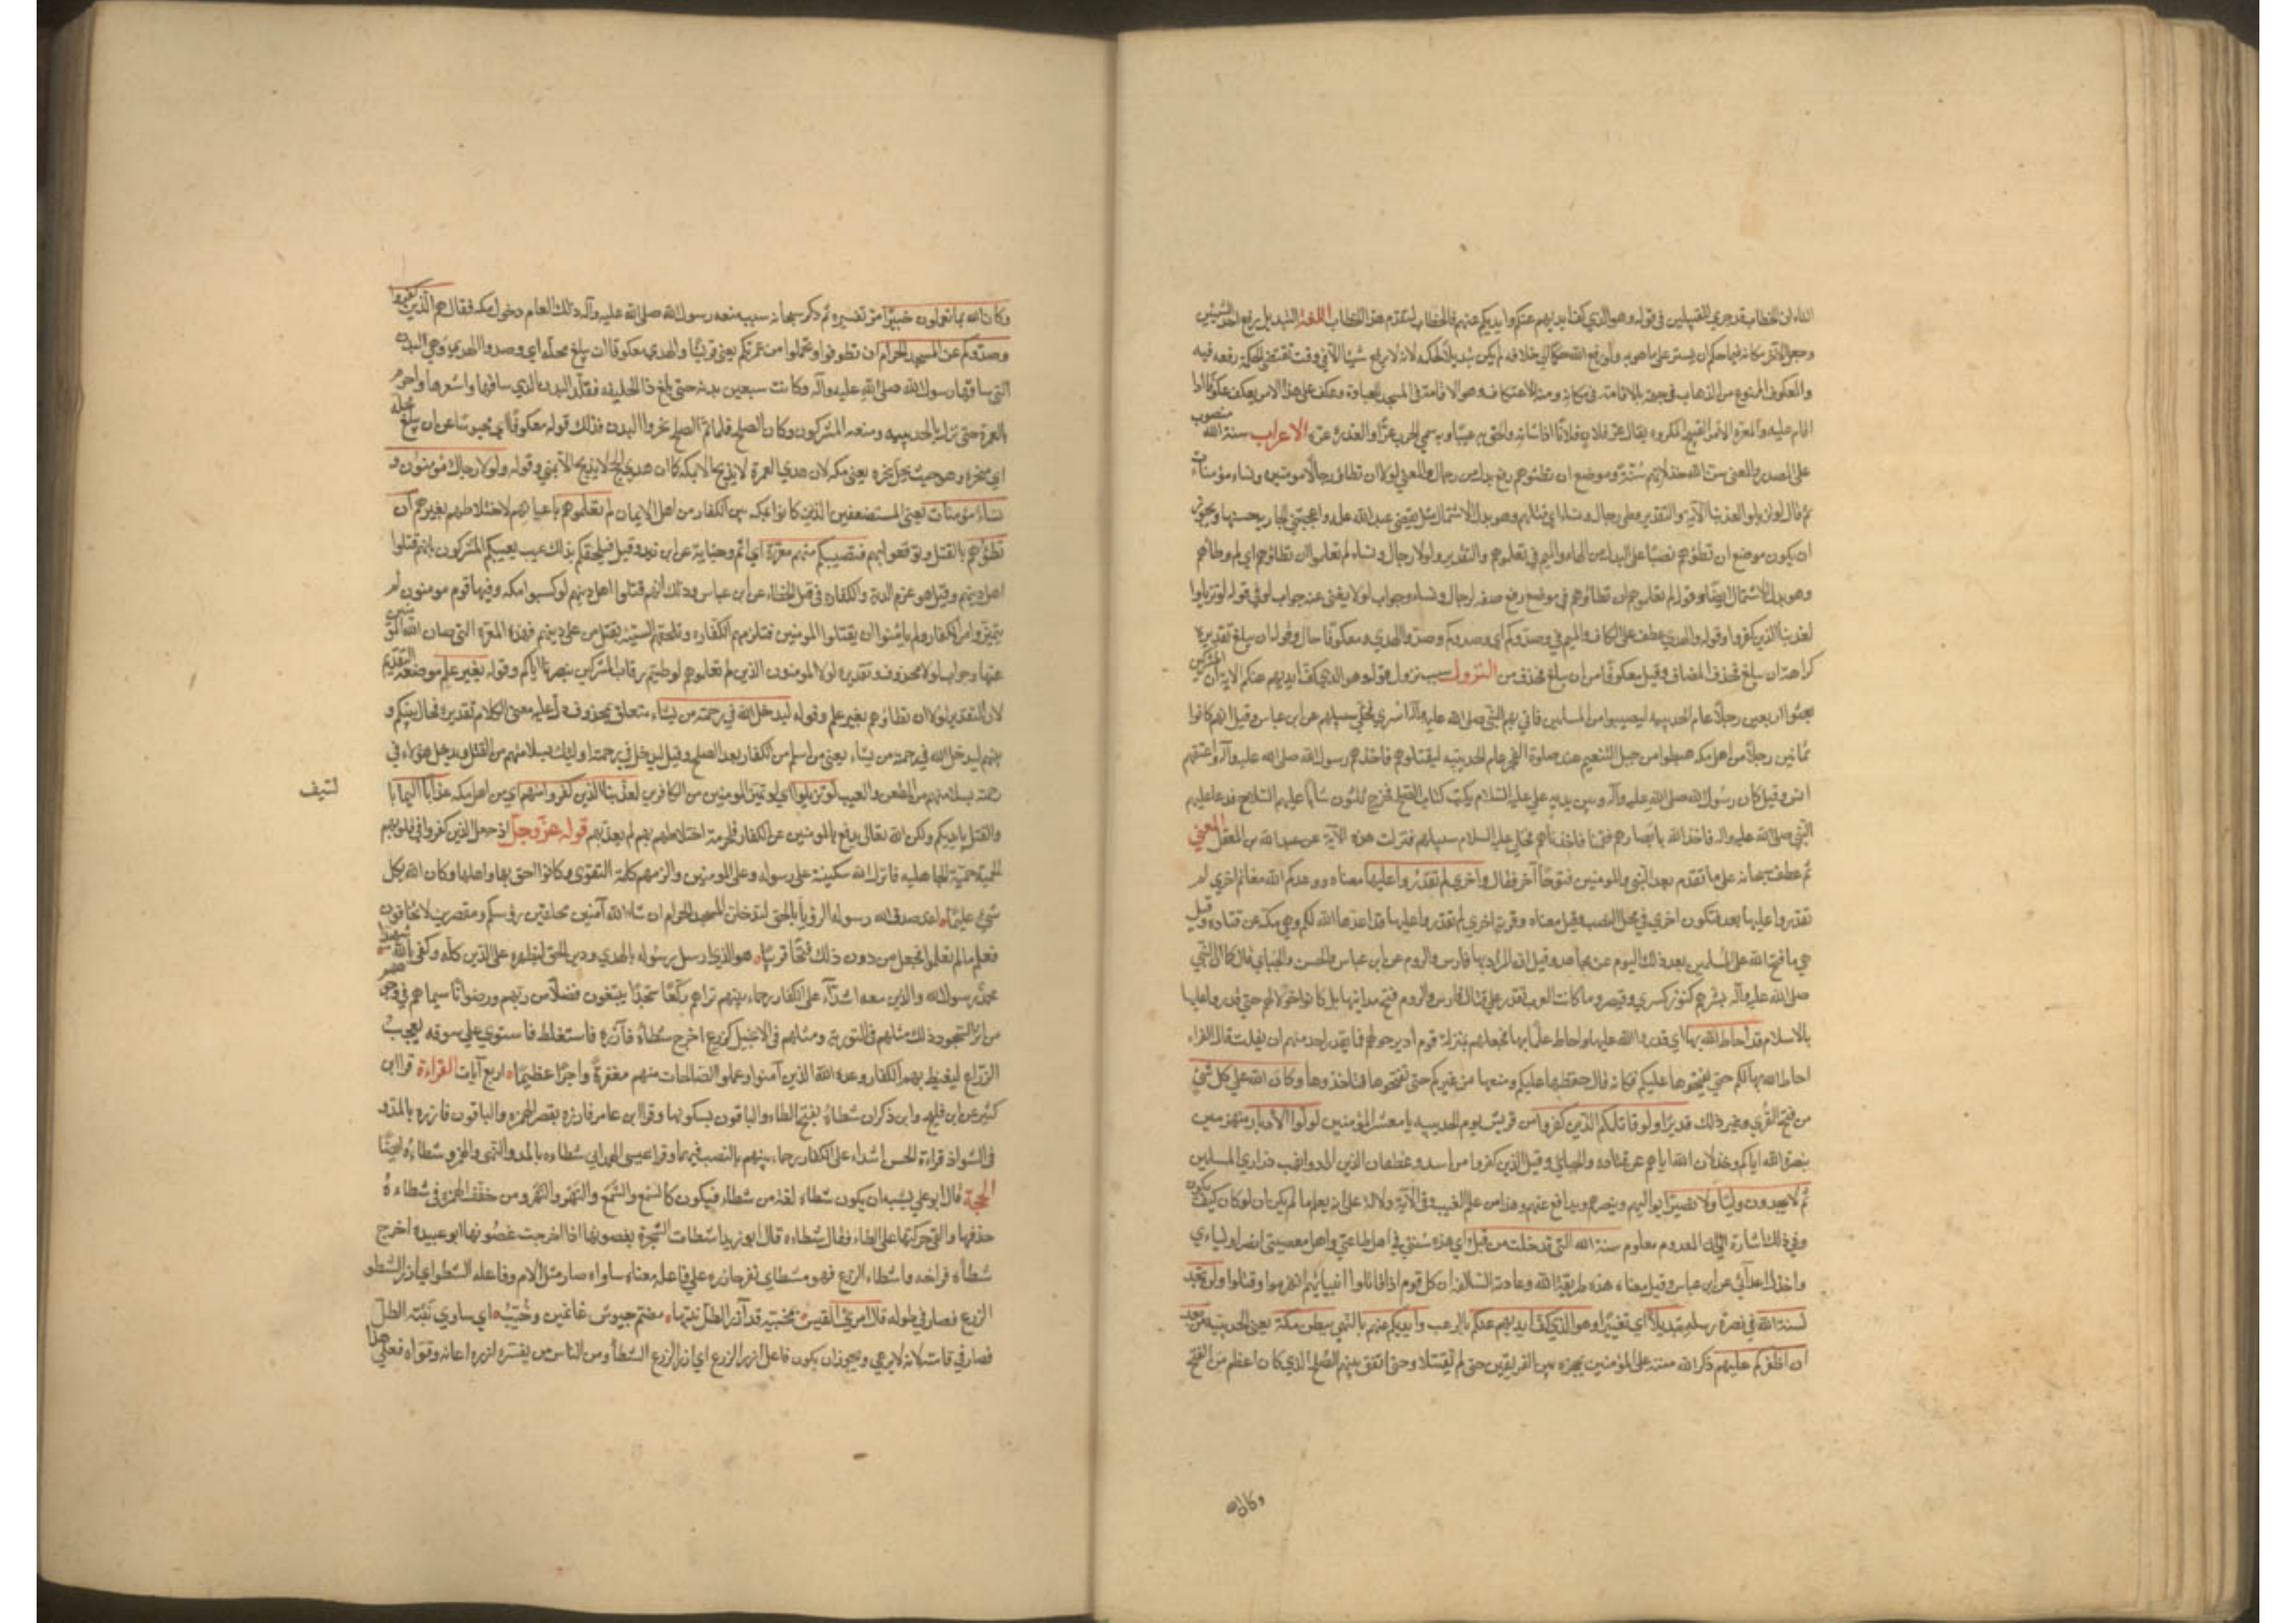 التاء ان الخطاب قد جري للقبيلين في قوله وهو الذي كف ايديهم عنكم وايديكم عنهم فالخطاب لتقدم هذا الخطاب اللغة التبديل رفع احد الشيئين
وجعل الآخر مكانه فيما حكم ان يستمر على ما هو به ولو رفع الله حكما الي خلافه لم يكن تبديلا لحكمه لانه لا يرفع شيئا الا في وقت تقتضي الحكمة رفعه فيه
والمعكوف الممنوع من الذهاب في جهة بالاقامة في مكانه ومنه الاعتكاف وهو الاقامة في المسجد للعبادة وعكف على هذا الامر يعكف عكوفا اذا
اقام عليه والمعرة الامر القبيح المكروه يقال عر فلان فلانا اذا شانه والحق به عيبا وبه سمي الجرب عرا والعذرة عرة الاعراب سنة الله منصوب
على المصدر والمعنى سن الله خذلانهم سنة وموضع ان تطئوهم رفع بدل من رجال والمعنى لولا ان تطاؤا رجالا مومنين ونساء مؤمنات
ثم قال لو تزيلوا لعذبنا الآية والتقدير وطي رجال ونساء اي قتلهم وهو بدل الاشتمال مثل يعجبني عبد الله علمه واعجبتني الجارية حسنها ويجوز
ان يكون موضع ان تطؤهم نصبا على البدل من الهاء والميم في تعلموهم والتقدير ولولا رجال ونساء لم تعلموا ان تطاؤهم اي لم وطأهم
وهو بدل الاشتمال ايضا وقوله لم تعلموهم ان تطاؤهم في موضع رفع صفة لرجال ونساء وجواب لولا يغني عنه جواب لو في قوله لو تزيلوا
لعذبنا الذين كفروا وقوله والهدي عطف على الكاف والميم في وصدوكم اي وصدوكم وصدوا الهدي ومعكوفا حال وقوله ان يبلغ تقديره
كراهة ان يبلغ فحذف المضاف وقيل معكوفا من ان يبلغ فحذف من النزول سبب نزول قوله وهو الذي كف ايديهم عنكم الاية ان المشركين
بعثوا اربعين رجلا عام الحديبيه ليصيبوا من المسلمين فاتي بهم النبي صلى الله عليه وآله اسري فخلى سبيلهم عن ابن عباس وقيل انهم كانوا
ثمانين رجلا من اهل مكه هبطوا من جبل التنعيم عند صلوة الفجر عام الحديبيه ليقتلوهم فاخذهم رسول الله صلى الله عليه وآله واعتقهم
انس وقيل كان رسول الله صلى الله عليه وآله وبين يديه علي عليه السلام يكتب كتاب الصلح فخرج ثلثون شابا عليهم السلاح فدعا عليهم
النبي صلى الله عليه واله فاخذ الله بابصارهم فقمنا فاخذناهم فخلي عليه السلام سبيلهم فنزلت هذه الآية عن عبد الله بن المغفل المعني
ثم عطف سبحانه على ما تقدم بعد النبي والمومنين فتوحا آخر فقال واخرى لم تقدروا عليها معناه ووعدكم الله مغانم اخري لم
تقدروا عليها بعد فتكون اخري في محل النصب وقيل معناه وقرية اخري لم تقدروا عليها قد اعدها الله لكم وهي مكة عن قتادة وقيل
هي ما فتح الله على المسلمين بعد ذلك اليوم عن مجاهد وقيل ان المراد بها فارس والروم عن ابن عباس والحسن والجبائي قال كما ان النبي
صلى الله عليه وآله بشرهم كنوز كسري وقيصر وما كانت العرب تقدر على قتال فارس والروم فتح مدائنها بل كانوا خولا لهم حتي قدروا عليها
بالاسلام قد احاط الله بها اي قدر الله عليها واحاط علما بها فجعلهم بمنزلة قوم ادير حولهم فما يقدر احد منهم ان يفلت قال الفراء
احاط الله بها لكم حتي يفتحوها عليكم فكانه قال حفظها عليكم ومنعها من غيركم حتى تفتحوها فتاخذوها وكان الله على كل شي
من فتح القرى وغير ذلك قديرا ولو قاتلكم الذين كفروا من قريش يوم الحديبيه يا معشر المؤمنين لولوا الأدبار منهزمين
بنصرة الله اياكم وخذلان الله اياهم عن قتاده والجبائي وقيل الذين كفروا من اسد وغطفان الذين ارادوا نهب ذراري المسلمين
ثم لا يجدون وليا ولا نصيرا يواليهم وينصرهم ويدافع عنهم وهذا من علم الغيب وفي الآية دلالة على انه يعلم ما لم يكن ان لو كان كيف يكون
وفي ذلك اشارة الي ان المعدوم معلوم سنة الله التي قد خلت من قبل اي هذه سنتي في اهل طاعتي واهل معصيتي انصر اوليائي
واخذل اعدائي عن ابن عباس وقيل معناه هذه طريقة الله وعادته السالفة ان كل قوم اذا قاتلوا انبيائهم انهزموا وقتلوا ولن تجد
لسنة الله في نصرة رسله تبديلا اي تغييرا وهو الذي كف ايديهم عنكم بالرعب وأيديكم عنهم بالنهي ببطن مكة يعني الحديبيه من بعد
ان اظفركم عليهم ذكر الله منته على المؤمنين بحجزه بين الفريقين حتى لم يقتتلا وحتى اتفق بينهم الصلح الذي كان اعظم من الفتح
وكان الله
وكان الله بما تعملون خبيرا مر تفسيره ثم ذكر سبحانه سبب منعه رسول الله صلى الله عليه وآله ذلك العام دخول مكه فقال هم الذين كفروا
وصدوكم عن المسجد الحرام ان تطوفوا وتحلوا من عمرتكم يعني قريشا والهدي معكوفا ان يبلغ محله اي وصدوا الهدي وهي البدن
التي ساقها رسول الله صلى الله عليه وآله وكانت سبعين بدنة حتى بلغ ذا الحليفه فقلد البدن الذي ساقها واشعرها واحرم
بالعمرة حتى نزل بالحديبيه ومنعه المشركون وكان الصلح فلما تم الصلح نحروا البدن فذلك قوله معكوفا اي محبوسا عن ان يبلغ محله
اي منحره وهو حيث يحل نحره يعني مكه لان هدي العمرة لا يذبح الا بمكه كما ان هدي الحج لا يذبح الا بمني وقوله ولولا رجال مؤمنون و
نساء مؤمنات يعني المستضعفين الذين كانوا بمكه بين الكفار من اهل الايمان لم تعلموهم باعيانهم لاختلاطهم بغيرهم أن
تطؤهم بالقتل وتوقعوا بهم فتصيبكم منهم معرة اي اثم وجناية عن ابن زيد وقيل فيلحقكم بذلك عيب يعيبكم المشركون بانهم قتلوا
اهل دينهم وقيل هو غرم الدية والكفاره في قتل الخطاء عن ابن عباس وذلك انهم قتلوا اهل دينهم لو كبسوا مكه وفيها قوم مومنون لم
يتميزوا من الكفار ولم يامنوا ان يقتلوا المومنين فتلزمهم الكفاره وتلحقهم السيئة بقتل من على دينهم فهذه المعرة التي صان الله المومنين
عنها وجواب لولا محذوف وتقديره لولا المومنون الذين لم تعلموهم لوطيتم رقاب المشركين بنصرنا اياكم وقوله بغير علم موضعه التقديم
لان التقدير لولا ان تطاؤهم بغير علم وقوله ليدخل الله في رحمته من يشاء متعلق بمحذوف دل عليه معنى الكلام تقديره فحال بينكم و
بينهم ليدخل الله في رحمته من يشاء يعني من اسلم من الكفار بعد الصلح وقيل ليدخل في رحمته اوليك بسلامتهم من القتل ويدخل هؤلاء في
رحمته بسلامتهم من الطعن والعيب لو تزيلوا اي لو تميز المومنين من الكافرين لعذبنا الذين كفروا منهم اي من اهل مكه عذابا اليما با
لسيف
والقتل بايديكم ولكن الله تعالى يدفع بالمومنين عن الكفار فلحرمة اختلاطهم بهم لم يعذبهم قوله عز وجل اذ جعل الذين كفروا في قلوبهم
الحمية حمية الجاهليه فانزل الله سكينته على رسوله وعلى المومنين والزمهم كلمة التقوى وكانوا احق بها واهلها وكان الله بكل
شيء عليما لقد صدق الله رسوله الرؤيا بالحق لتدخلن المسجد الحرام ان شاء الله آمنين محلقين رؤسكم ومقصرين لا تخافون
فعلم ما لم تعلموا فجعل من دون ذلك فتحا قريبا هو الذي ارسل رسوله بالهدي ودين الحق ليظهره على الدين كله وكفى بالله شهيدا
محمد رسول الله والذين معه اشداء على الكفار رحماء بينهم تراهم ركعا سجدا يبتغون فضلا من ربهم ورضوانا سيماهم في وجوههم
من اثر السجود ذلك مثلهم في التورية ومثلهم في الانجيل كزرع اخرج شطأه فآزره فاستغلظ فاستوي علي سوقه يعجب
الزراع ليغيظ بهم الكفار وعد الله الذين آمنوا وعملوا الصالحات منهم مغفرة واجرا عظيما اربع آيات القراءة قرا ابن
كثير عن ابن فليح وابن ذكوان شطاه بفتح الطاء والباقون بسكونها وقرا ابن عامر فازره بقصر الهمزه والباقون فازره بالمد و
في الشواذ قراءة الحسن اشداء على الكفار رحماء بينهم بالنصب فيهما وقرا عيسى الهمداني شطاءه بالمد والهمز و شطاءه ايضا
الحجة قال ابو علي يشبه ان يكون شطاء لغة من شطاء فيكون كالشمع والشمع والنهر والنهر ومن خفف الهمزه في شطاءه
حذفها والقي حركتها على الطاء فقال شطاه قال ابو زيد اشطات الشجرة بغصونها اذا اخرجت غصونها ابو عبيده اخرج
شطأه فراخه واشطاء الزرع فهو مشطاي مفرخ آزره على فاعله معناه ساواه صار مثل الام وفاعله الشطو اي آزر الشطو
الزرع فصار في طوله قال امرئ القيس بمحنية قد آزر الضال نبتها مضم جيوش غانمين وخيب اي ساوي نبته الضال
فصار في قامته لانه لا يرعي ويجوز ان يكون فاعل ازر الزرع اي ازر الزرع الشطأ ومن الناس من يفسره ازره اعانه وقواه فعلى هذا